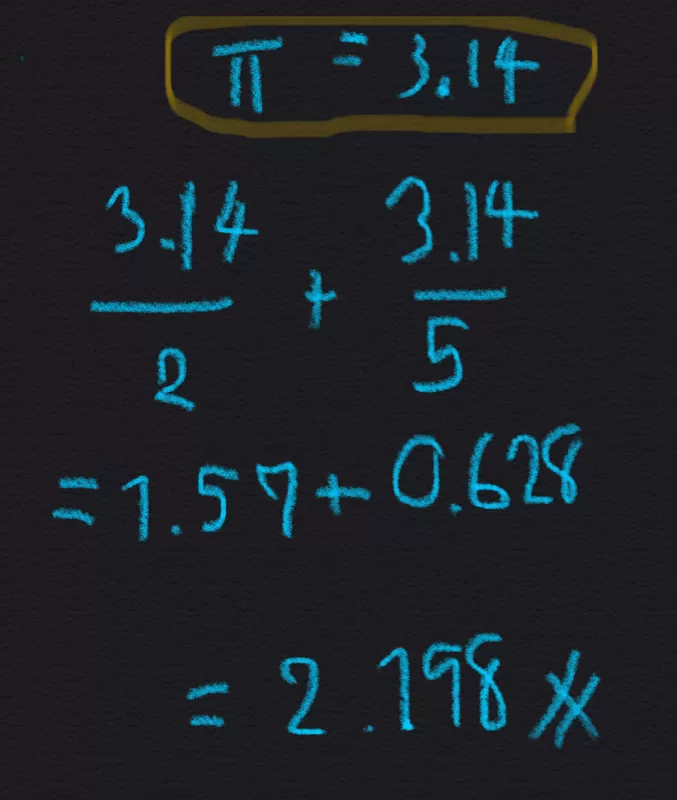 π = 3.14
3.14/2 + 3.14/5
= 1.57 + 0.628
= 2.198 ※